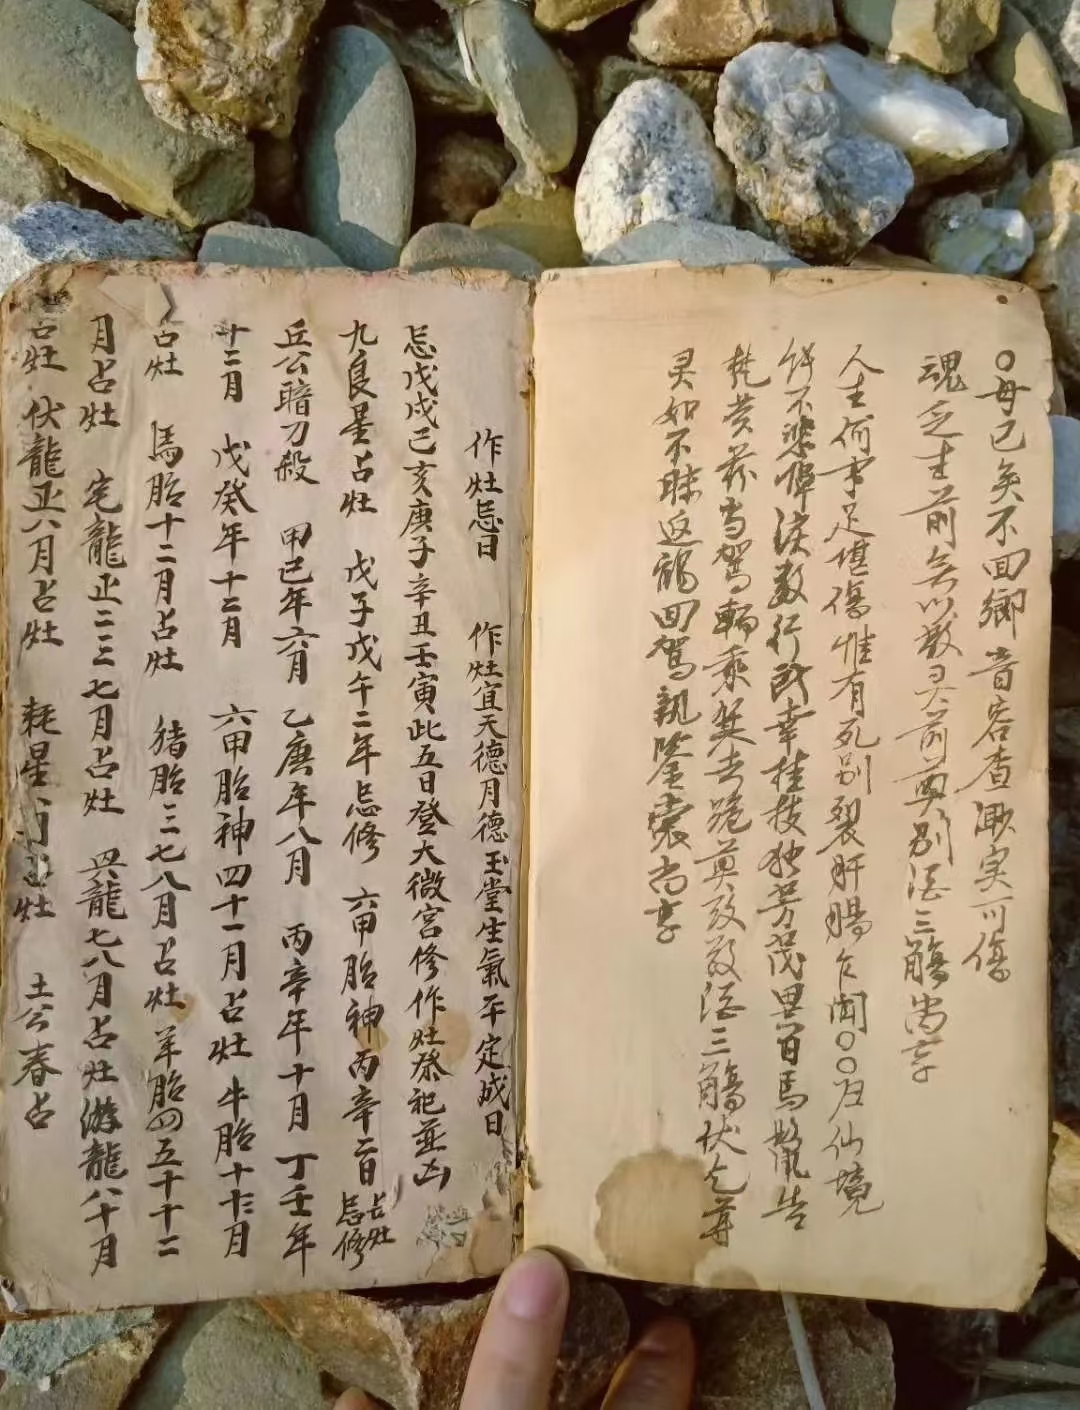 〇母已矣不回鄉 音容杳渺实可傷
魂之生前无以教灵前奠别酒三觴尚享
人生何事足堪傷惟有死别裂肝腸乍聞〇〇归仙境
不悲啼淚数行 幸桂枝独芳茂里百馬鬣告
梵黄 驾輀乘奠去跪英致敬酒三觴伏乞尊
灵如不昧返魂回驾親鉴嘗尚享
作灶忌日 作灶宜天德月德玉堂生氣平定成日
忌戊戌己亥庚子辛丑壬寅此五日登大微宮修作灶祭祀並凶
九良星占灶 戊子戊午二年忌修 六甲胎神丙辛二日占灶忌修
丘公暗刀殺 甲己年六月 乙庚年八月 丙辛年十月 丁壬年
十二月 戊癸年十二月 六甲胎神四十一月占灶 牛胎十十二月
占灶 馬胎十二月占灶 猪胎三七八月占灶 羊胎四五十十二
月占灶 宅龍正二三七月占灶 七八月占灶 游龍八十月
占灶 伏龍正六月占灶 耗星 占灶 土公春占